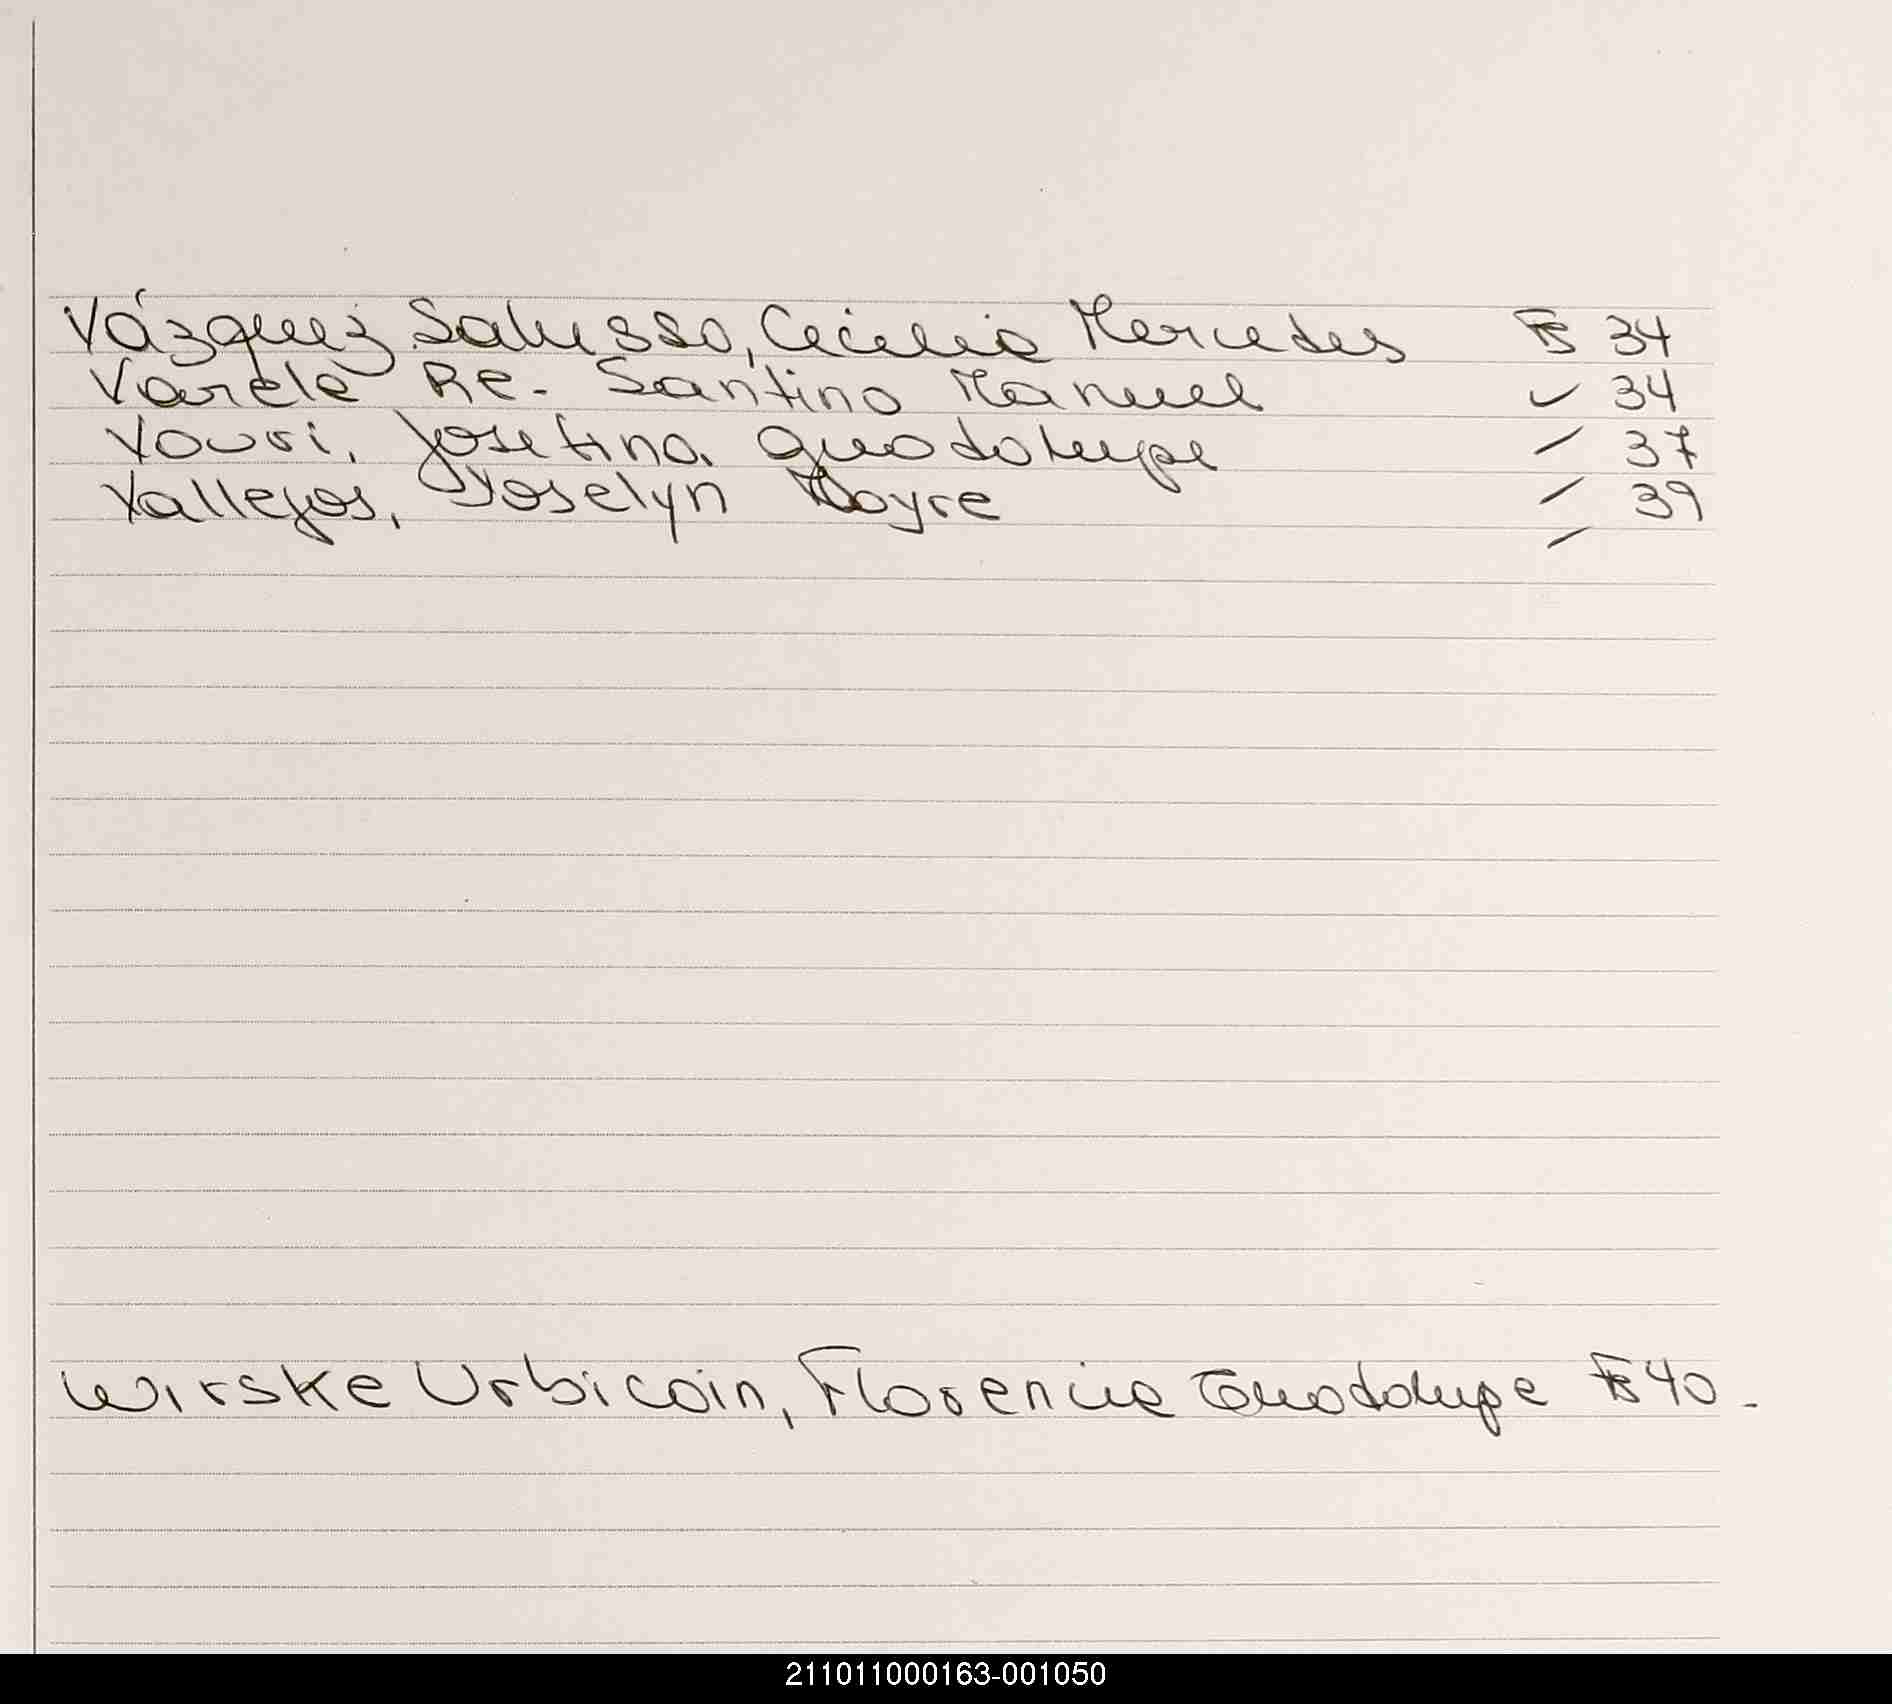 Vázquez Salusso, Cecilia Mercedes Fs 34
Varela Re. Santino Manuel 34
Vouri, Josefina Guadalupe 37
Vallejos, Yoselyn 39
Wirske Urbicain, Florencia Guadalupe Fs 40.
211011000163-001050